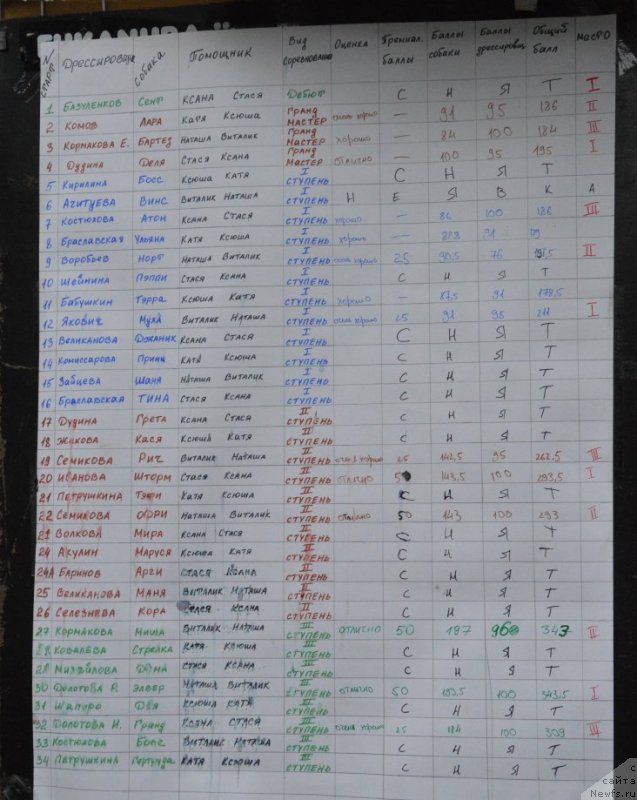 № старт Дрессировщ Собака Помощник Вид Соревнований Оценка Премиал. баллы Баллы собаки Баллы дрессировщ Общий балл Место
1 Базуленков Сент Ксана Стася Дебют С Н Я Т I
2 Комов Лара Катя Ксюша Гранд Мастер очень хорошо — 91 95 186 II
3 Кормакова Е. Бартез Наташа Виталик Гранд Мастер хорошо — 84 100 184 III
4 Дудина Деля Стася Ксана Гранд Мастер отлично — 100 95 195 I
5 Кирилина Босс Ксюша Катя I ступень С Н Я Т
6 Агитуева Винс Виталик Наташа I ступень Н Е Я В К А
7 Костюхова Атон Ксана Стася I ступень хорошо — 86 100 186 III
8 Браславская Ульяна Катя Ксюша I ступень хорошо —
9 Воробьев Норт Наташа Виталик I ступень очень хорошо 25 90,5 76 191,5 II
10 Шейнина Пэппи Стася Ксана I ступень С Н Я Т
11 Бабушкин Терра Ксюша Катя I ступень хорошо — 87,5 91 178,5
12 Якович Муха Виталик Наташа I ступень очень хорошо 25 91 95 211 I
13 Великанова Джаник Ксана Стася I ступень С Н Я Т
14 Комиссарова Принц Катя Ксюша I ступень С Н Я Т
15 Зайцева Шаня Наташа Виталик I ступень С Н Я Т
16 Браславская Тина Стася Ксана I ступень С Н Я Т
17 Дудина Грета Ксана Стася II ступень С Н Я Т
18 Жукова Кася Ксюша Катя II ступень С Н Я Т
19 Семикова Рич Виталик Наташа II ступень очень хорошо 25 142,5 95 262,5 III
20 Иванова Шторм Стася Ксана II ступень отлично 50 143,5 100 293,5 I
21 Петрушкина Тэфи Катя Ксюша II ступень С Н Я Т
22 Семикова Офри Наташа Виталик II ступень отлично 50 143 100 293 II
Волкова Мира Ксана Стася II ступень С Н Я Т
24 Акулин Маруся Ксюша Катя II ступень С Н Я Т
24А Баринов Арги Стася Ксана II ступень С Н Я Т
25 Великанова Маня Виталик Наташа II ступень С Н Я Т
26 Селезнева Кора Стася Ксана II ступень С Н Я Т
27 Кормакова Миша Виталик Наташа III ступень отлично 50 197 96 343 II
Ковалёва Стрелка Катя Ксюша III ступень С Н Я Т
Михайлова Дана Стася Ксана III ступень С Н Я Т
30 Долотова Р. Элвер Наташа Виталик III ступень отлично 50 193,5 100 343,5 I
31 Шапиро Ксюша Катя III ступень С Н Я Т
32 Долотова И. Гранд Ксана Стася III ступень очень хорошо 25 184 100 309 III
33 Костюхова Босс Виталик Наташа III ступень С Н Я Т
34 Петрушкина Гертруда Катя Ксюша III ступень С Н Я Т
с сайта
Newfs.ru